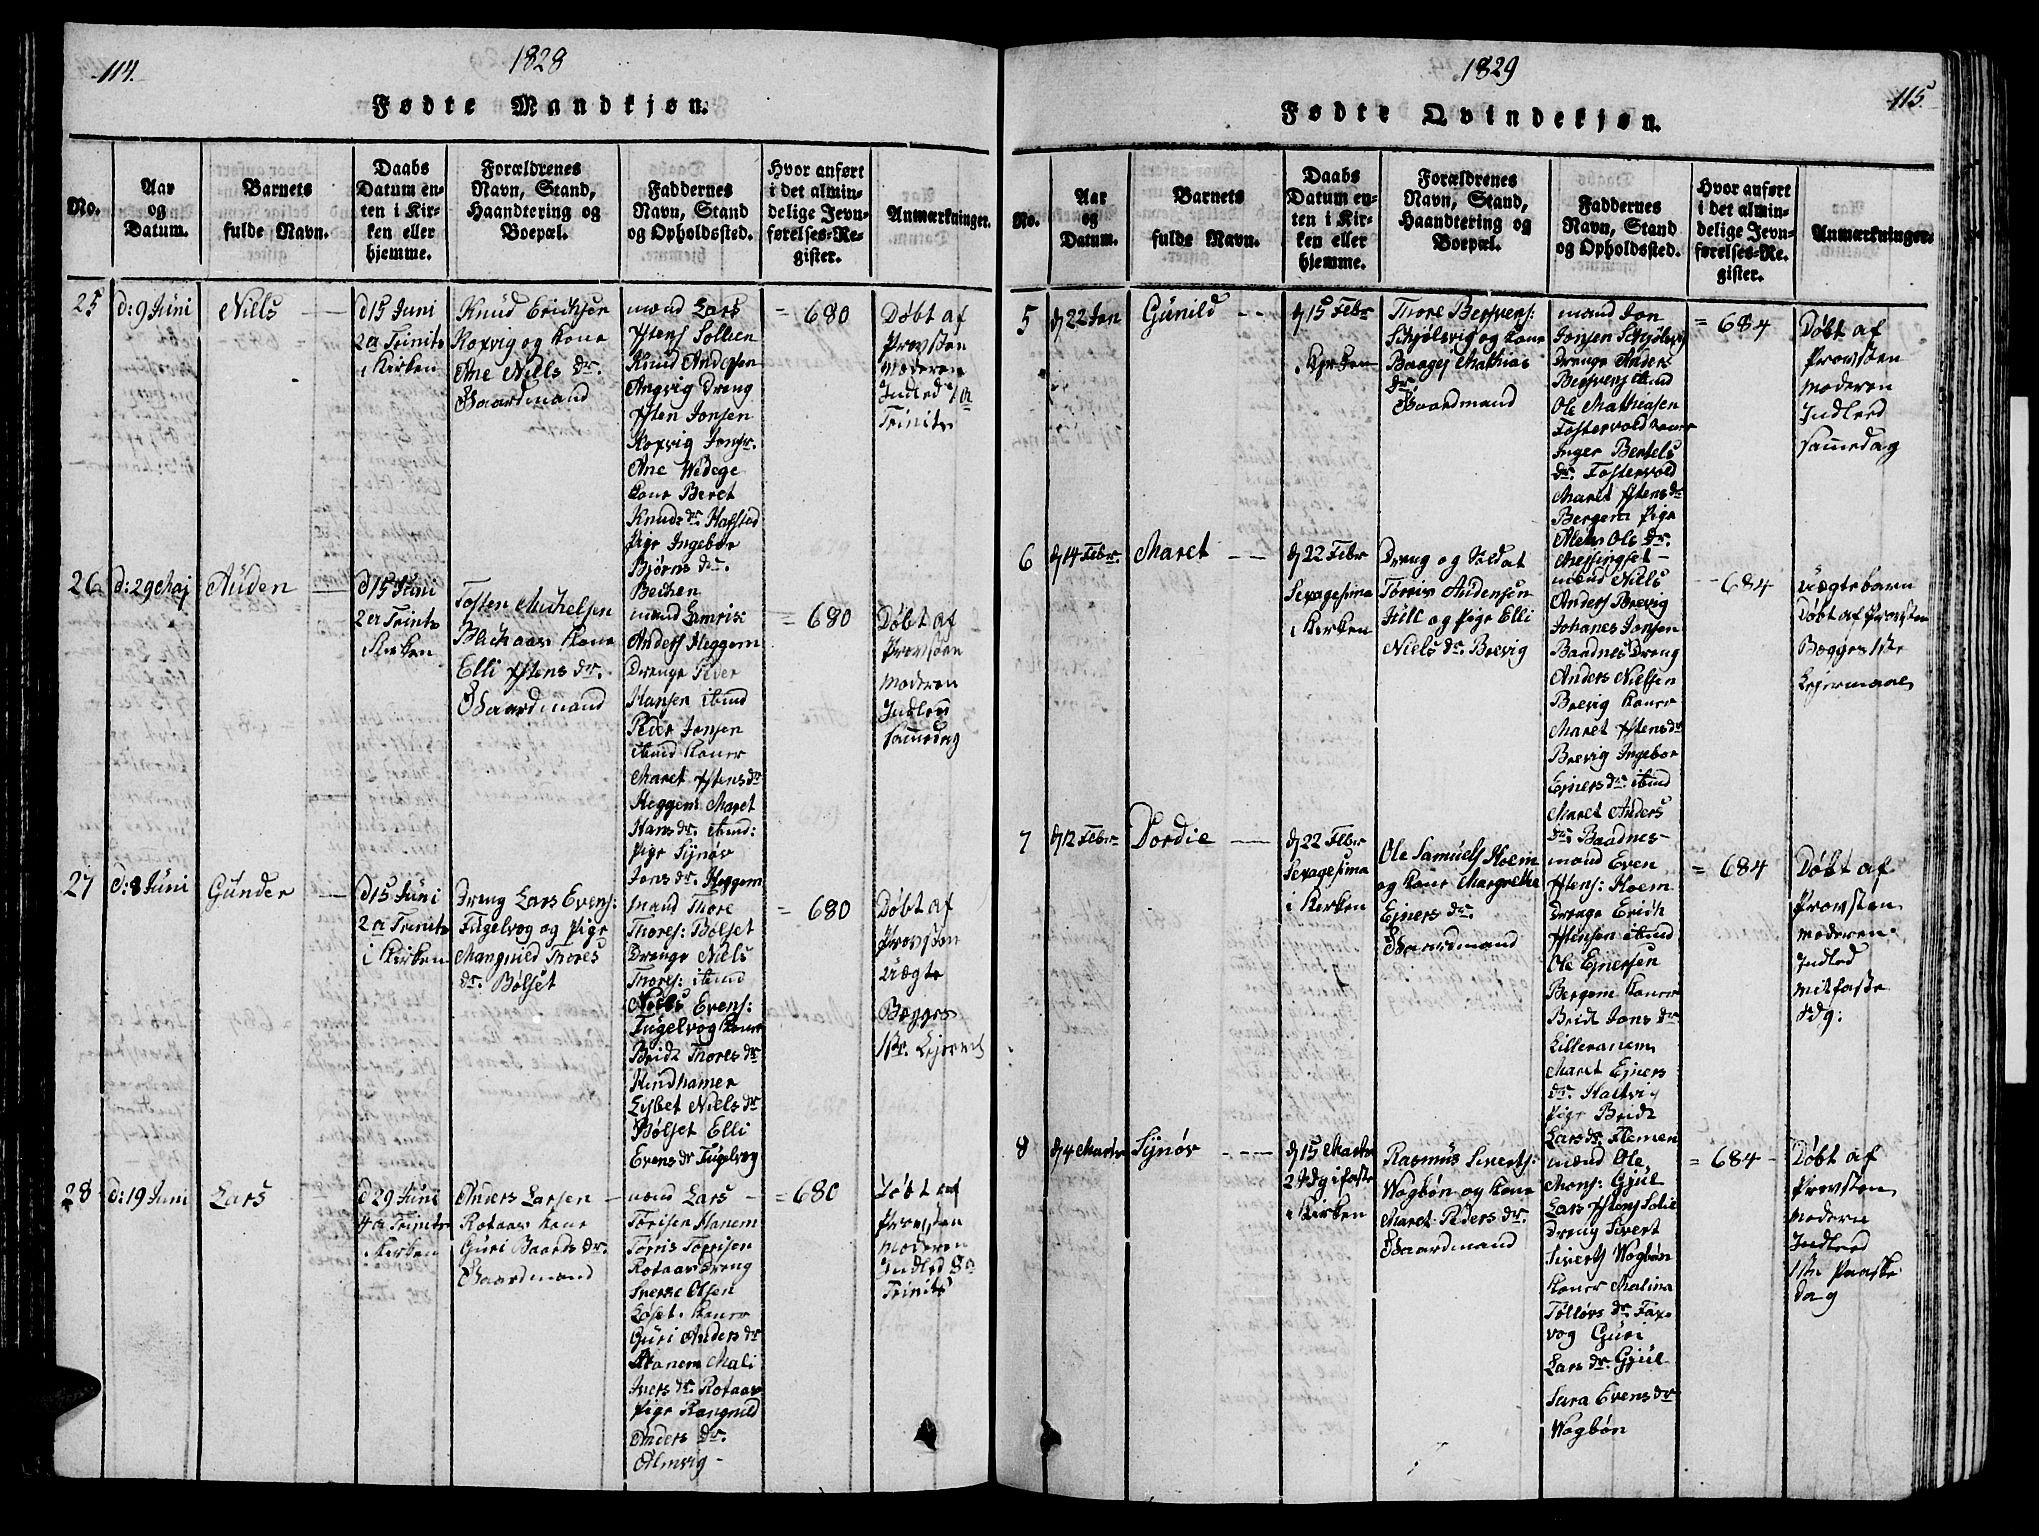 114.
1828
Fødte Mandkjøn.
No.
Aar
og
Datum.
Barnets
fulde Navn.
Daabs
Datum en-
ten i Kir-
ken eller
hjemme.
Forældrenes
Navn, Stand,
Haandtering og
Boepæl.
Faddernes
Navn, Stand
og Opholdssted.
Hvor anført
i det almin-
delige Jevn-
førelses-Re-
gister.
Anmærkninger.
25
d: 9 Juni
Nills
d 15 Juni
2 a Trinits
i Kirken
Knud Erichsen
Roxvig og Kone
Ane Niels dr.
Gaardmand
mænd Lars
Ystens Sollien
Knud Andersen
Angvig Dreng
Ysten Jonsen
Roxvig Jomfr.
Ane Wedege
Kone Beret
Knuds dr. Hafsted
Pige Ingebor
Bjørns dr.
Bechen
= 680
Døbt af
Provsten
Moderen
Indled 7 a
Trinits
26
d: 29 Maj
Auden
d 15 Juni
2 a Trinits
Kirken
Tosten Michelsen
Blichaas Kone
Elli Ystens dr.
Gaardmand
mænd Lamris:
Anders Heggem
Drenge Siver
Hansen ibmd
Peder Jonsen
ibmd Koner
Maret Ystens dr
Heggem Maret
Hans dr. ibmd:
Pige Sijnøv
Jons dr. Heggem
= 680
Døbt af
Provsten
Moderen
Indled
Samedag
27
d: 8 Juni
Gunder
d 15 Juni
2 a Trinits
i Kirken
Dreng Lars Evens:
Fugelvog og Pige
Mangnild Thores
dr. Bølset
Mand Thore
Thores: Bølset
Drenge Niels
Thores: ibmd
Niels Evens:
Fugelvog Koner
Bridt Thores dr
Hindhamer
Lisbet Niels dr
Bølset Elli
Evens dr Fugelvog
= 680
Døbt af
Provsten
Uægte
Begges
1ste Lejerm
28
d: 19 Juni
Lars
d 29 Juni
4 a Trinits
i Kirken
Anders Larsen
Rotaas Kone
Guri Baards dr.
Gaardmand
mænd Lars
Torisen Hanem
Torris Torrisen
Rotaas Dreng
Sverke Olsen
Løset Koner
Guri Anders dr
Hanem Mali
Ivers dr. Rotaas
Pige Rangnild
Anders dr.
Almvig
= 680
Døbt af
Provsten
Moderen
Indled 8 a
Trinits
1829
115.
Fødte Qvindekjøn.
No.
Aar
og
Datum.
Barnets
fulde Navn.
Daabs
Datum en-
ten i Kir-
ken eller
hjemme.
Forældrenes
Navn, Stand,
Haandtering og
Boepæl.
Faddernes
Navn, Stand
og Opholdssted.
Hvor anført
i det almin-
delige Jevn-
førelses-Re-
gister.
Anmærkninger.
5
d 22 Jan
Gunild
d 15 Febr
i Kirken
Thore Bersvens:
Schjølsvig og Kone
Baagej Mathias
dr.
Gaardmand
mand Jon
Jonsen Schjølsvig
Drenge Anders
Bersvens ibmd
Ole Mathiasen
Fostervold Koner
Inger Bertels
dr. Fostervold
Maret Ystens dr
Bergem Pige
Ales Ole dr.
Meslingset
= 684
Døbt af
Provsten
Moderen
Indled
Samedag
6
d 14 Febr.
Maret
d 22 Febr
Sexagesima
i Kirken
Dreng og Soldat
Torris Andensen
Hill og Pige Elli
Niels dr. Brevig
mænd Niels
Anders Brevig
Johanes Jonsen
Baadnes Dreng
Anders Nielsen
Brevig Koner
Maret Ystens dr
Brevig Ingebor
Ejners dr. ibmd
Maret Anders
dr. Baadnes
684
Uægtebarn
Døbt af Provsten
Begges 1ste
Lejermaal
7
d 12 Febr
Dordie
d 22 Febr
Sexagesima
i Kirken
Ole Samuels Hoem
og Kone Margrethe
Ejners dr.
Gaardmand
mand Even
Ystens: Hoem
Drenge Erich
Ystensen ibmd
Ole Ejnersen
Bergem Koner
Bridt Jons dr.
Lilleranem
Maret Ejners
dr. Haltvig
Pige Bridt
Lars dr. Flemen
= 684
Døbt af
Provsten
Moderen
Indled
Mitfaste
Sdg:
8
d 4 Marts
Sijnøv
d 15 Marts
2 Sdg i faste
i Kirken
Rasmus Siverts:
Wogbøn og Kone
Maret Peders dr.
Gaardmand
mænd Ole
Mons: Gjul
Lars Ystens Solie
Dreng Sivert
Siverts Wogbøn
Koner Malina
Tollevs dr. Fox-
vog Guri
Lars dr. Gjul
Sara Evens dr
Wogbøn
= 684
Døbt af
Provsten
Moderen
Indled
1ste Paaske
dag